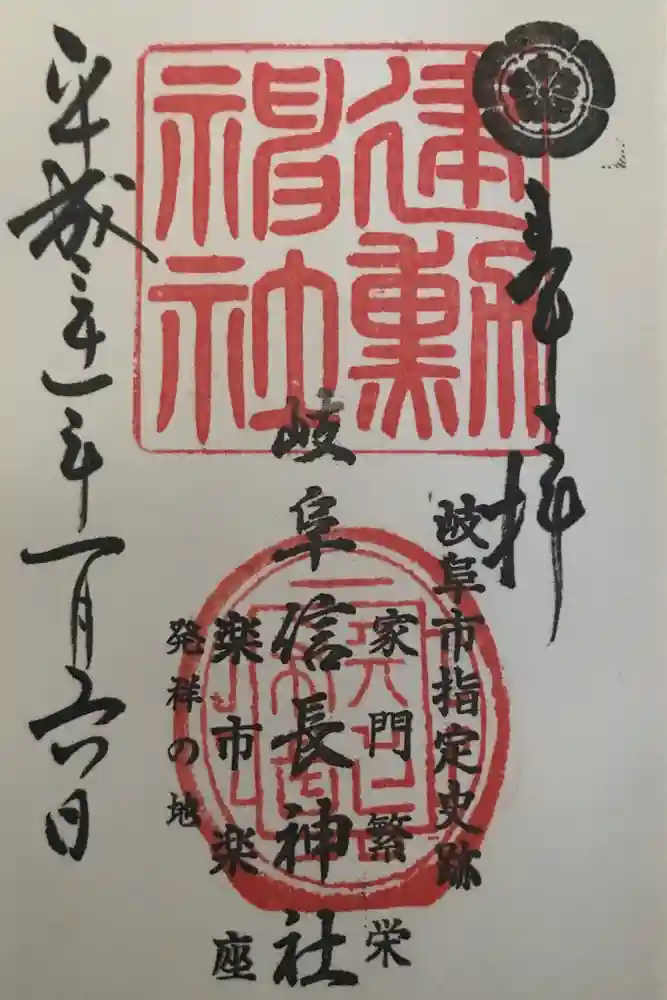 奉拝
建勲
神社
岐阜市指定史跡
家門繁栄
岐阜信長神社
楽市楽座
発祥の地
平成三十一年一月六日